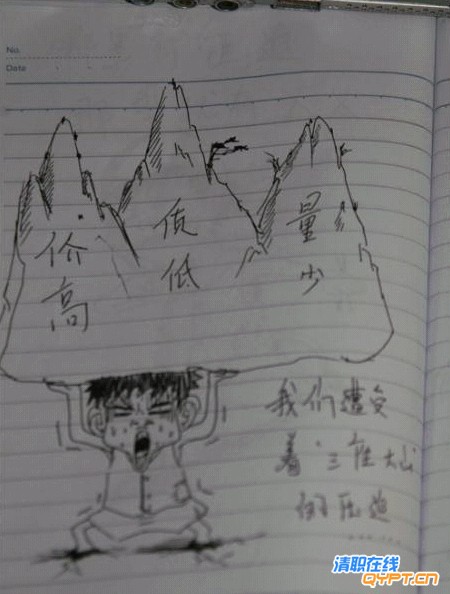 No.
Date
价高
质低
量少
我们遭受
着“三座大山”
的压迫
清职在线
QYPT.CN